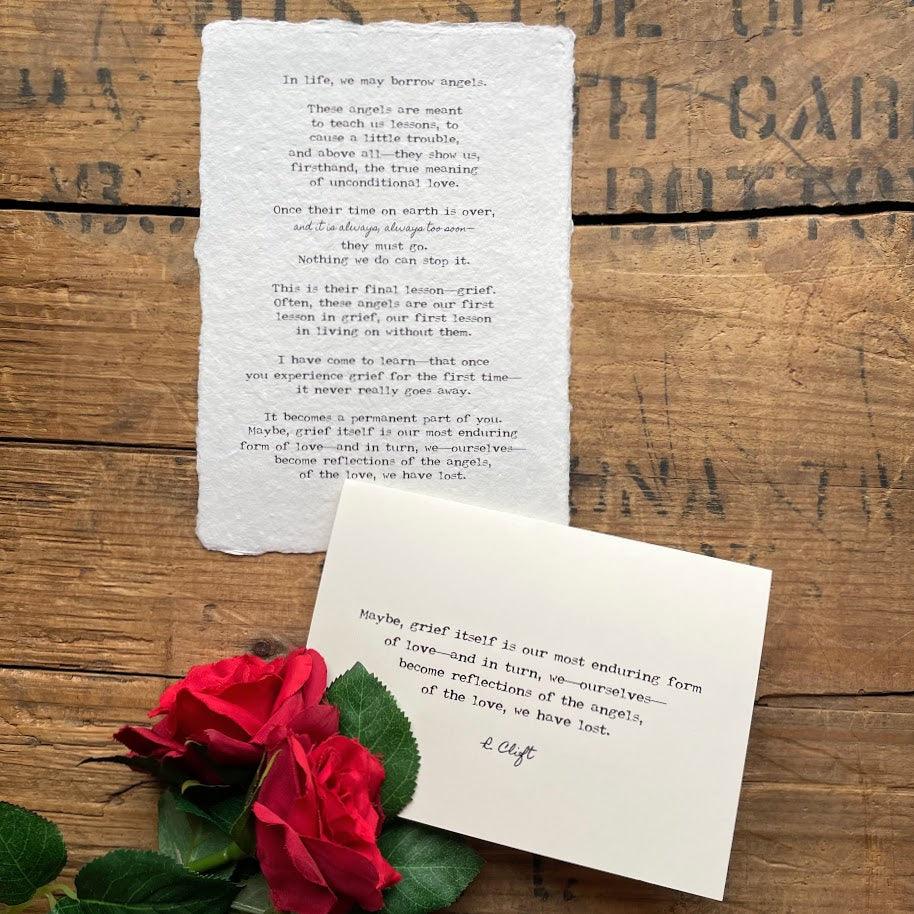 In life, we may borrow angels.
These angels are meant
to teach us lessons, to
cause a little trouble,
and above all—they show us,
firsthand, the true meaning
of unconditional love.
Once their time on earth is over,
and it is always, always too soon—
they must go.
Nothing we do can stop it.
This is their final lesson—grief.
Often, these angels are our first
lesson in grief, our first lesson
in living on without them.
I have come to learn—that once
you experience grief for the first time—
it never really goes away.
It becomes a permanent part of you.
Maybe, grief itself is our most enduring
form of love—and in turn, we—ourselves—
become reflections of the angels,
of the love, we have lost.
Maybe, grief itself is our most enduring form
of love—and in turn, we—ourselves—
become reflections of the angels,
of the love, we have lost.
Clift